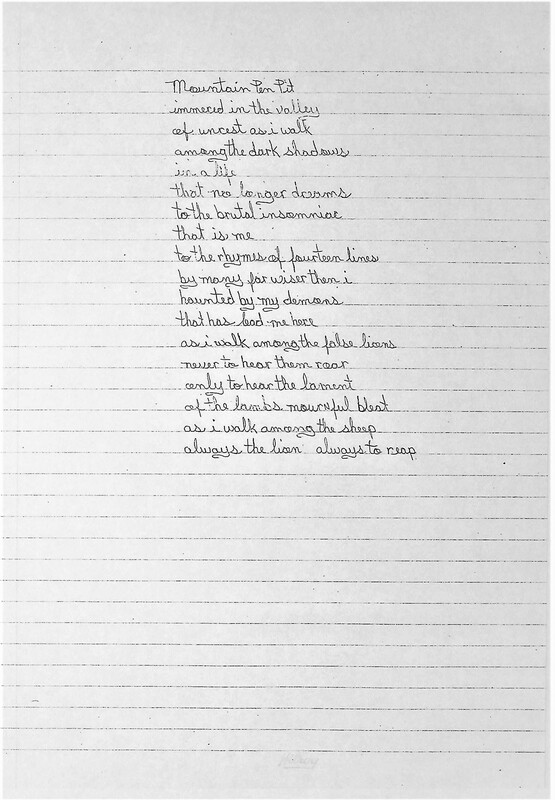 Mountain Pen Pit
immerced in the valley
of uncest as i walk
among the dark shadows
in a life
that no longer dreams
to the brutal insomniac
that is me
to the rhymes of fourteen lines
by many far wiser then i
haunted by my demons
that has lead me here
as i walk among the false lions
never to hear them roar
only to hear the lament
of the lambs mournful bleat
as i walk among the sheep
always the lion always to reap